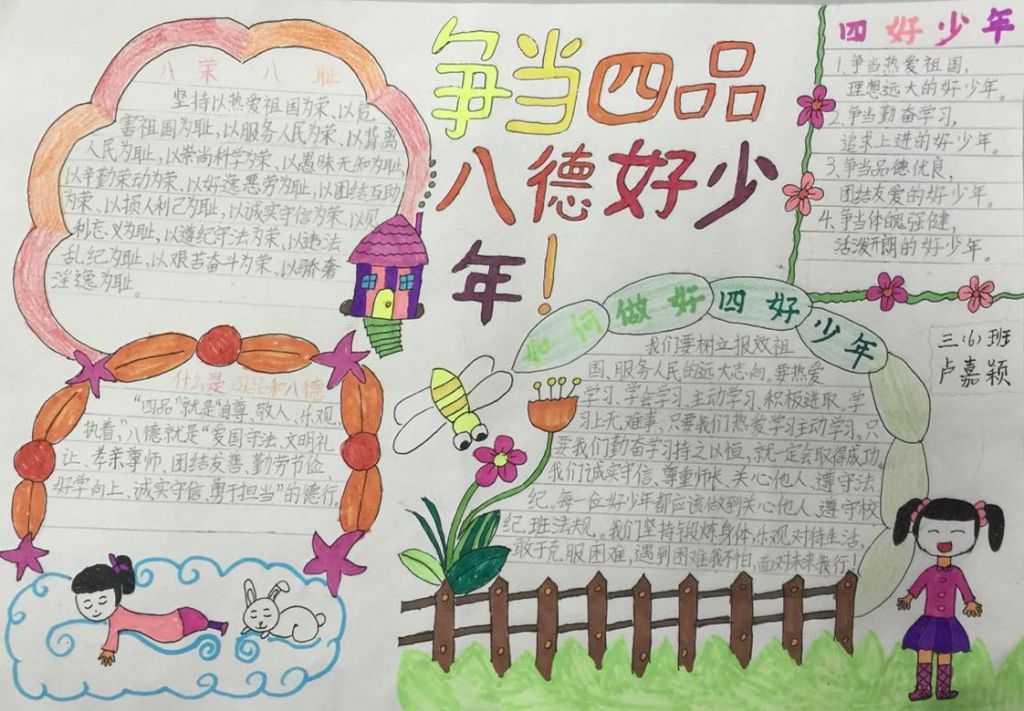 争当四品
八德好少
年!
八荣八耻
坚持以热爱祖国为荣、以危
害祖国为耻，以服务人民为荣、以背离
人民为耻，以崇尚科学为荣、以愚昧无知为耻，
以辛勤荣动为荣、以好逸恶劳为耻，以团结互助
为荣、以损人利己为耻，以诚实守信为荣、以见
利忘义为耻，以遵纪守法为荣、以违法
乱纪为耻，以艰苦奋斗为荣、以骄奢
淫逸为耻。
四好少年
1、争当热爱祖国，
理想远大的好少年。
2、争当勤奋学习，
追求上进的好少年。
3、争当品德优良，
团结友爱的好少年。
4、争当体魄强健，
活泼开朗的好少年。
什么是四品和八德
“四品”就是“自尊、敬人、乐观、
执着”，八德就是“爱国守法、文明礼
让、孝亲尊师、团结友善、勤劳节俭、
好学向上、诚实守信、勇于担当”的德行。
如何做好四好少年
我们要树立报效祖
国、服务人民的远大志向。要热爱
学习、学会学习、主动学习、积极进取。学
习上无难事，只要我们热爱学习主动学习，只
要我们勤奋学习持之以恒，就一定会取得成功。
我们诚实守信、尊重师长、关心他人、遵守法
纪。每一位好少年都应该做到关心他人、遵守校
纪、班法规。我们坚持锻炼身体、乐观对待生活、
敢于克服困难，遇到困难我不怕，面对未来我行！
三（6）班
卢嘉颖